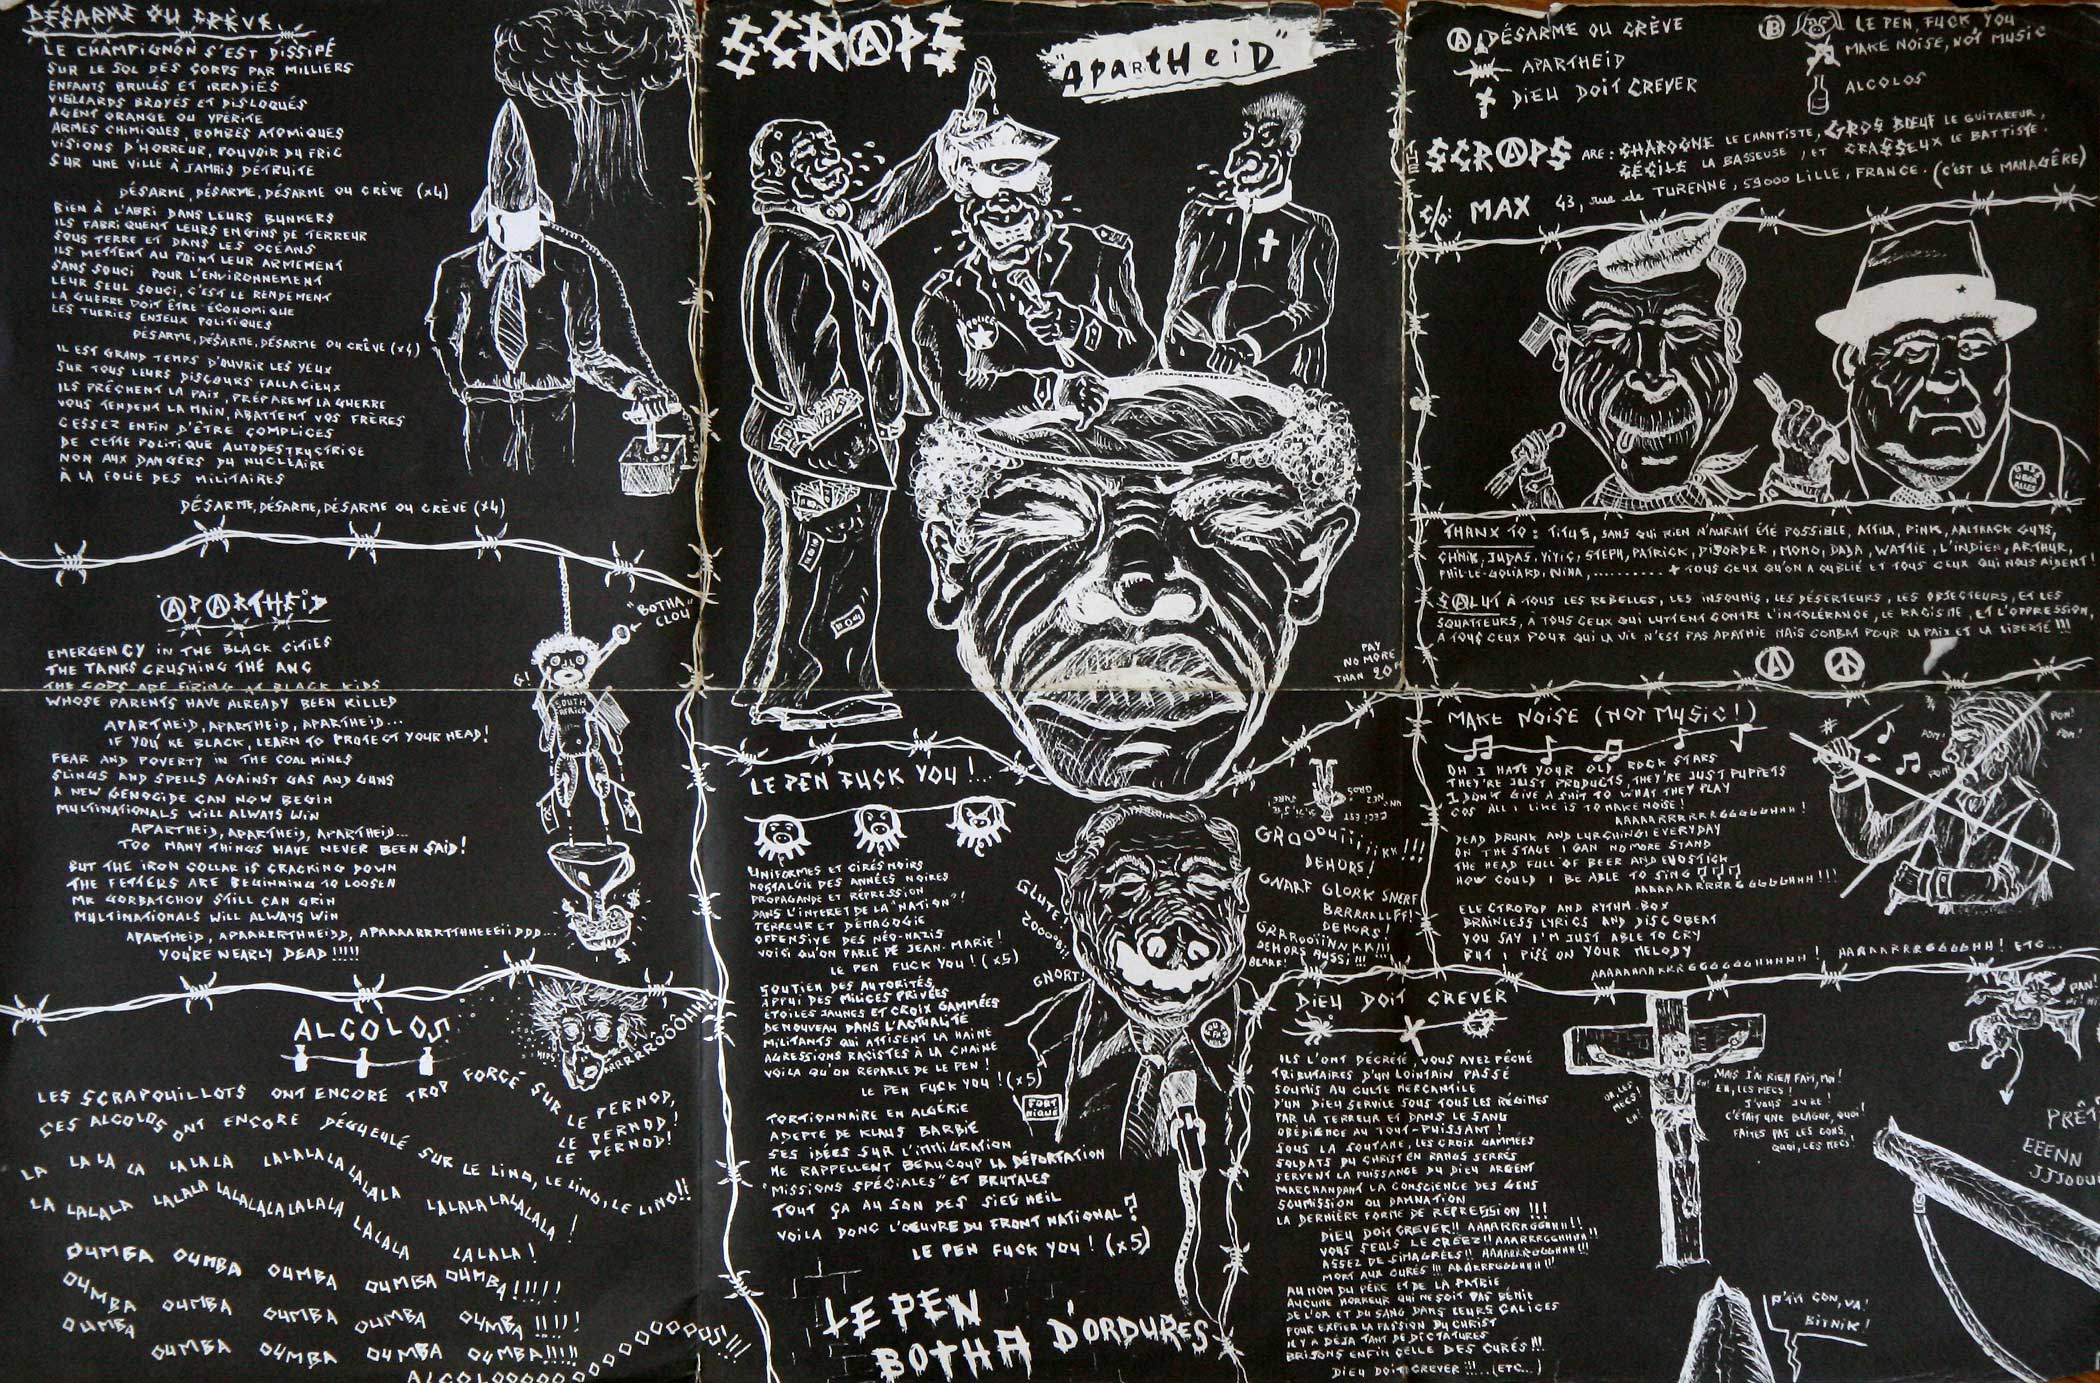 DÉSARME OU CRÈVE.
LE CHAMPIGNON S'EST DISSIPÉ
SUR LE SOL DES CORPS PAR MILLIERS
ENFANTS BRULÉS ET IRRADIÉS
VIEILLARDS BROYÉS ET DISLOQUÉS
AGENT ORANGE OU YPÉRITE
ARMES CHIMIQUES, BOMBES ATOMIQUES
VISIONS D'HORREUR, POUVOIR DU FRIC
SUR UNE VILLE À JAMAIS DÉTRUITE
DÉSARME, DÉSARME, DÉSARME OU CRÈVE (x4)
BIEN À L'ABRI DANS LEURS BUNKERS
ILS FABRIQUENT LEURS ENGINS DE TERREUR
SOUS TERRE ET DANS LES OCÉANS
ILS METTENT AU POINT LEUR ARMEMENT
SANS SOUCI POUR L'ENVIRONNEMENT
LEUR SEUL SOUCI, C'EST LE RENDEMENT
LA GUERRE DOIT ÊTRE ÉCONOMIQUE
LES TUERIES ENJEUX POLITIQUES
DÉSARME, DÉSARME, DÉSARME OU CRÊVE (x4)
IL EST GRAND TEMPS D'OUVRIR LES YEUX
SUR TOUS LEURS DISCOURS FALLACIEUX
ILS PRÊCHENT LA PAIX, PRÉPARENT LA GUERRE
VOUS TENDENT LA MAIN, ABATTENT VOS FRÈRES
CESSEZ ENFIN D'ÊTRE COMPLICES
DE CETTE POLITIQUE AUTODESTRUCTRICE
NON AUX DANGERS DU NUCLÉAIRE
À LA FOLIE DES MILITAIRES
DÉSARME, DÉSARME, DÉSARME OU CRÈVE (x4)
APARTHEID
EMERGENCY IN THE BLACK CITIES
THE TANKS CRUSHING THE ANC
THE COPS ARE FIRING AT BLACK KIDS
WHOSE PARENTS HAVE ALREADY BEEN KILLED
APARTHEID, APARTHEID, APARTHEID...
IF YOU'RE BLACK, LEARN TO PROTECT YOUR HEAD!
FEAR AND POVERTY IN THE COAL MINES
SLINGS AND SPELLS AGAINST GAS AND GUNS
A NEW GENOCIDE CAN NOW BEGIN
MULTINATIONALS WILL ALWAYS WIN
APARTHEID, APARTHEID, APARTHEID...
TOO MANY THINGS HAVE NEVER BEEN SAID!
BUT THE IRON COLLAR IS CRACKING DOWN
THE FETTERS ARE BEGINNING TO LOOSEN
MR GORBATCHOV STILL CAN GRIN
MULTINATIONALS WILL ALWAYS WIN
APARTHEID, APAARRRTHHEIDD, APAAAARRRTTHHEEEIIDDD...
YOU'RE NEARLY DEAD !!!!!
"BOTHA"
CLOU
G!
SOUTH
AFRICA
ALCOLOS
HIPS
ARRRRRÔÔÔHH
LES SCRAPOUILLOTS ONT ENCORE TROP FORCÉ SUR LE PERNOD,
LE PERNOD!
LE PERNOD!
CES ALCOLOS ONT ENCORE DÉGUEULÉ SUR LE LINO, LE LINO, LE LINO!!
LA LA LA LA LALALA LALALALALALALA LALALALALALA!
LA LALALA LALALA LALALALALALALA LALALA LALALA!
OUMBA OUMBA OUMBA OUMBA OUMBA!!!!!
OUMBA OUMBA OUMBA OUMBA OUMBA !!!!!
OUMBA OUMBA OUMBA OUMBA OUMBA!!!!!
ALCOLOOOOOOOOOOOOOOOS!!!
SCRAPS
"APARTHEID"
POLICE
PAY
NO MORE
THAN 20F
LE PEN FUCK YOU!...
UNIFORMES ET CIRÉS NOIRS
NOSTALGIE DES ANNÉES NOIRES
PROPAGANDE ET RÉPRESSION
DANS L'INTERET DE LA "NATION"!
TERREUR ET DÉMAGOGIE
OFFENSIVE DES NÉO-NAZIS
VOICI QU'ON PARLE DE JEAN-MARIE!
LE PEN FUCK YOU! (x5)
SOUTIEN DES AUTORITÉS
APPUI DES MILICES PRIVÉES
ÉTOILES JAUNES ET CROIX GAMMÉES
DE NOUVEAU DANS L'ACTUALITÉ
MILITANTS QUI ATTISENT LA HAINE
AGRESSIONS RACISTES À LA CHAINE
VOILA QU'ON REPARLE DE LE PEN!
LE PEN FUCK YOU! (x5)
TORTIONNAIRE EN ALGÉRIE
ADEPTE DE KLAUS BARBIE
SES IDÉES SUR L'IMMIGRATION
ME RAPPELLENT BEAUCOUP LA DÉPORTATION
"MISSIONS SPÉCIALES" ET BRUTALES
TOUT ÇA AU SON DES SIEG HEIL
VOILA DONC L'OEUVRE DU FRONT NATIONAL?
LE PEN FUCK YOU! (x5)
CECI EST
UN GROS
NEZ
GROOOUIIIIIKK !!!
DEHORS!
GNARF GLORK SNERF
BRRRAALLFF!
DEHORS!
GRRROOIINNKK!!!
DEHORS AUSSI!!!
BLARF!
GNORT!
FORT
NIQUE
LE PEN
BOTHA D'ORDURES
A DÉSARME OU CRÈVE
APARTHEID
DIEU DOIT CREVER
B LE PEN, FUCK YOU
MAKE NOISE, NOT MUSIC
ALCOLOS
THE SCRAPS ARE: CHAROGNE LE CHANTISTE, GROS BOEUF LE GUITAREUR,
CÉCILE LA BASSEUSE, ET CRASSEUX LE BATTISTE.
C/O: MAX 43, rue de TURENNE, 59000 LILLE, FRANCE. (C'EST LE MANAGÊRE)
THANX TO: TITUS, SANS QUI RIEN N'AURAIT ÉTÉ POSSIBLE, ATTILA, PINK, AALTRACK GUYS,
CHNIK, JUDAS, YIYIC, STEPH, PATRICK, DISORDER, MOMO, DADA, WATTIE, L'INDIEN, ARTHUR,
PHIL-LE-GOLIARD, NINA, ......... + TOUS CEUX QU'ON A OUBLIÉ ET TOUS CEUX QUI NOUS AIDENT!
SALUT À TOUS LES REBELLES, LES INSOUMIS, LES DÉSERTEURS, LES OBJECTEURS, ET LES
SQUATTEURS, À TOUS CEUX QUI LUTTENT CONTRE L'INTOLÉRANCE, LE RACISME, ET L'OPPRESSION,
À TOUS CEUX POUR QUI LA VIE N'EST PAS APATHIE MAIS COMBAT POUR LA PAIX ET LA LIBERTÉ !!!
MAKE NOISE (NOT MUSIC!)
OH I HATE YOUR OLD ROCK STARS
THEY'RE JUST PRODUCTS, THEY'RE JUST PUPPETS
I DON'T GIVE A SHIT TO WHAT THEY PLAY
COS ALL I LIKE IS TO MAKE NOISE!
AAAAARRRRRGGGGGGHHH!
DEAD DRUNK AND LURCHING EVERYDAY
ON THE STAGE I CAN NO MORE STAND
THE HEAD FULL OF BEER AND EVOSTICK
HOW COULD I BE ABLE TO SING
AAAAAARRRRGGGGGHHH!!!
ELECTROPOP AND RYTHM-BOX
BRAINLESS LYRICS AND DISCOBEAT
YOU SAY I'M JUST ABLE TO CRY
BUT I PISS ON YOUR MELODY
AAAAAAARRRGGGGGGGHHHHH! AAAAARRRGGGGHHH! ETC...
POM!
POM!
POM!
POM!
DIEU DOIT CREVER
ILS L'ONT DÉCRÉTÉ, VOUS AVEZ PÊCHÉ
TRIBUTAIRES D'UN LOINTAIN PASSÉ
SOUMIS AU CULTE MERCANTILE
D'UN DIEU SERVILE SOUS TOUS LES RÉGIMES
PAR LA TERREUR ET DANS LE SANG
OBÉDIENCE AU TOUT-PUISSANT!
SOUS LA SOUTANE, LES CROIX GAMMÉES
SOLDATS DU CHRIST EN RANGS SERRÉS
SERVENT LA PUISSANCE DU DIEU ARGENT
MARCHANDANT LA CONSCIENCE DES GENS
SOUMISSION OU DAMNATION
LA DERNIÈRE FORME DE RÉPRESSION !!!
DIEU DOIT CREVER!! AAARRRRGGGHH!!
VOUS SEULS LE CRÉEZ!! AAARRRGGGHHHH!!
ASSEZ DE SIMAGRÉES!! AAARRRRGGGHHHH!!!
MORT AUX CURÉS !!! AAARRRRGGGGHHH!!!
AU NOM DU PÈRE ET DE LA PATRIE
AUCUNE HORREUR QUI NE SOIT PAS BÉNIE
DE L'OR ET DU SANG DANS LEURS CALICES
POUR EXPIER LA PASSION DU CHRIST
IL Y A DÉJA TANT DE DICTATURES
BRISONS ENFIN CELLE DES CURÉS!!!
DIEU DOIT CREVER !!!.....(ETC...)
OH, LES
MECS!
EH!
MAIS J'AI RIEN FAIT, MOI!
EH, LES MECS!
J'VOUS JURE!
C'ÉTAIT UNE BLAGUE, QUOI!
FAITES PAS LES CONS,
QUOI, LES MECS!
PAN
HI! HI!
PRÊT
EEENN
JJJOOU
P'TIT CON, VA!
BITNIK!